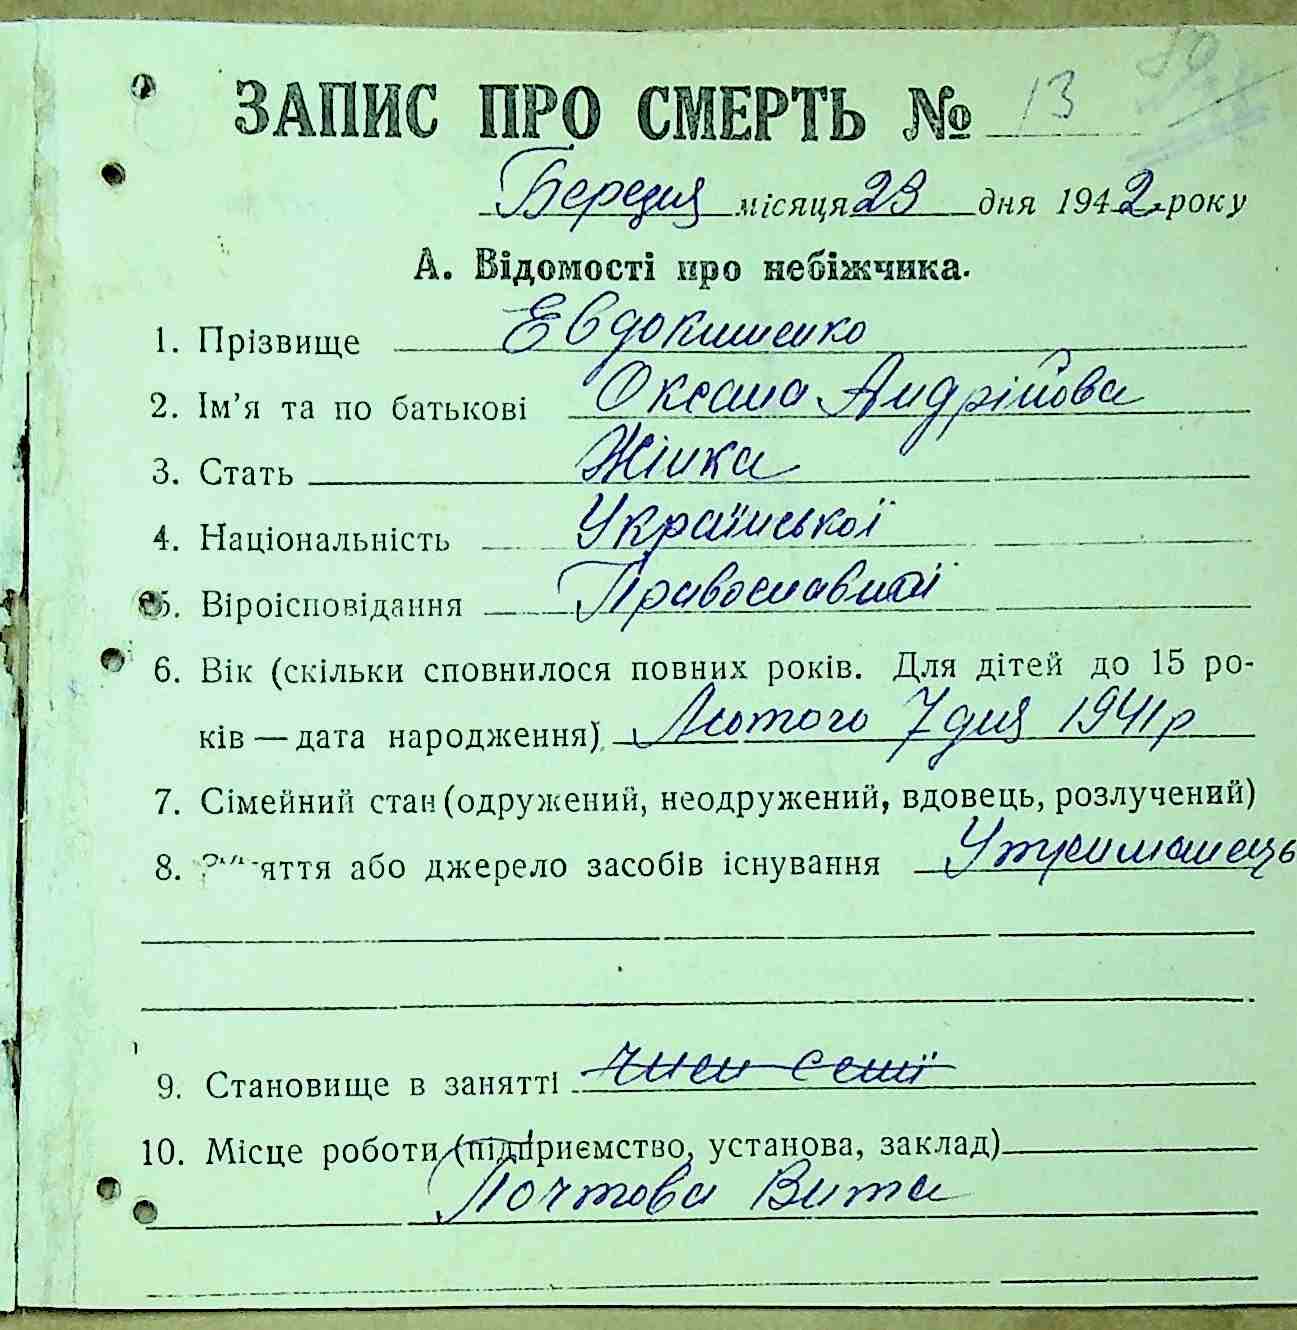 ЗАПИС ПРО СМЕРТЬ № 13
Березня місяця 23 дня 1942 року
А. Відомості про небіжчика.
1. Прізвище Евдокименко
2. Ім’я та по батькові Оксана Андрійовa
3. Стать Жінка
4. Національність Української
5. Віроісповідання Православної
6. Вік (скільки сповнилося повних років. Для дітей до 15 ро-
ків — дата народження) Лютого 7 дня 1941 р
7. Сімейний стан (одружений, неодружений, вдовець, розлучений)
8. Заняття або джерело засобів існування Утриманець
9. Становище в занятті член семії
10. Місце роботи (підприємство, установа, заклад)
Почтова Вита